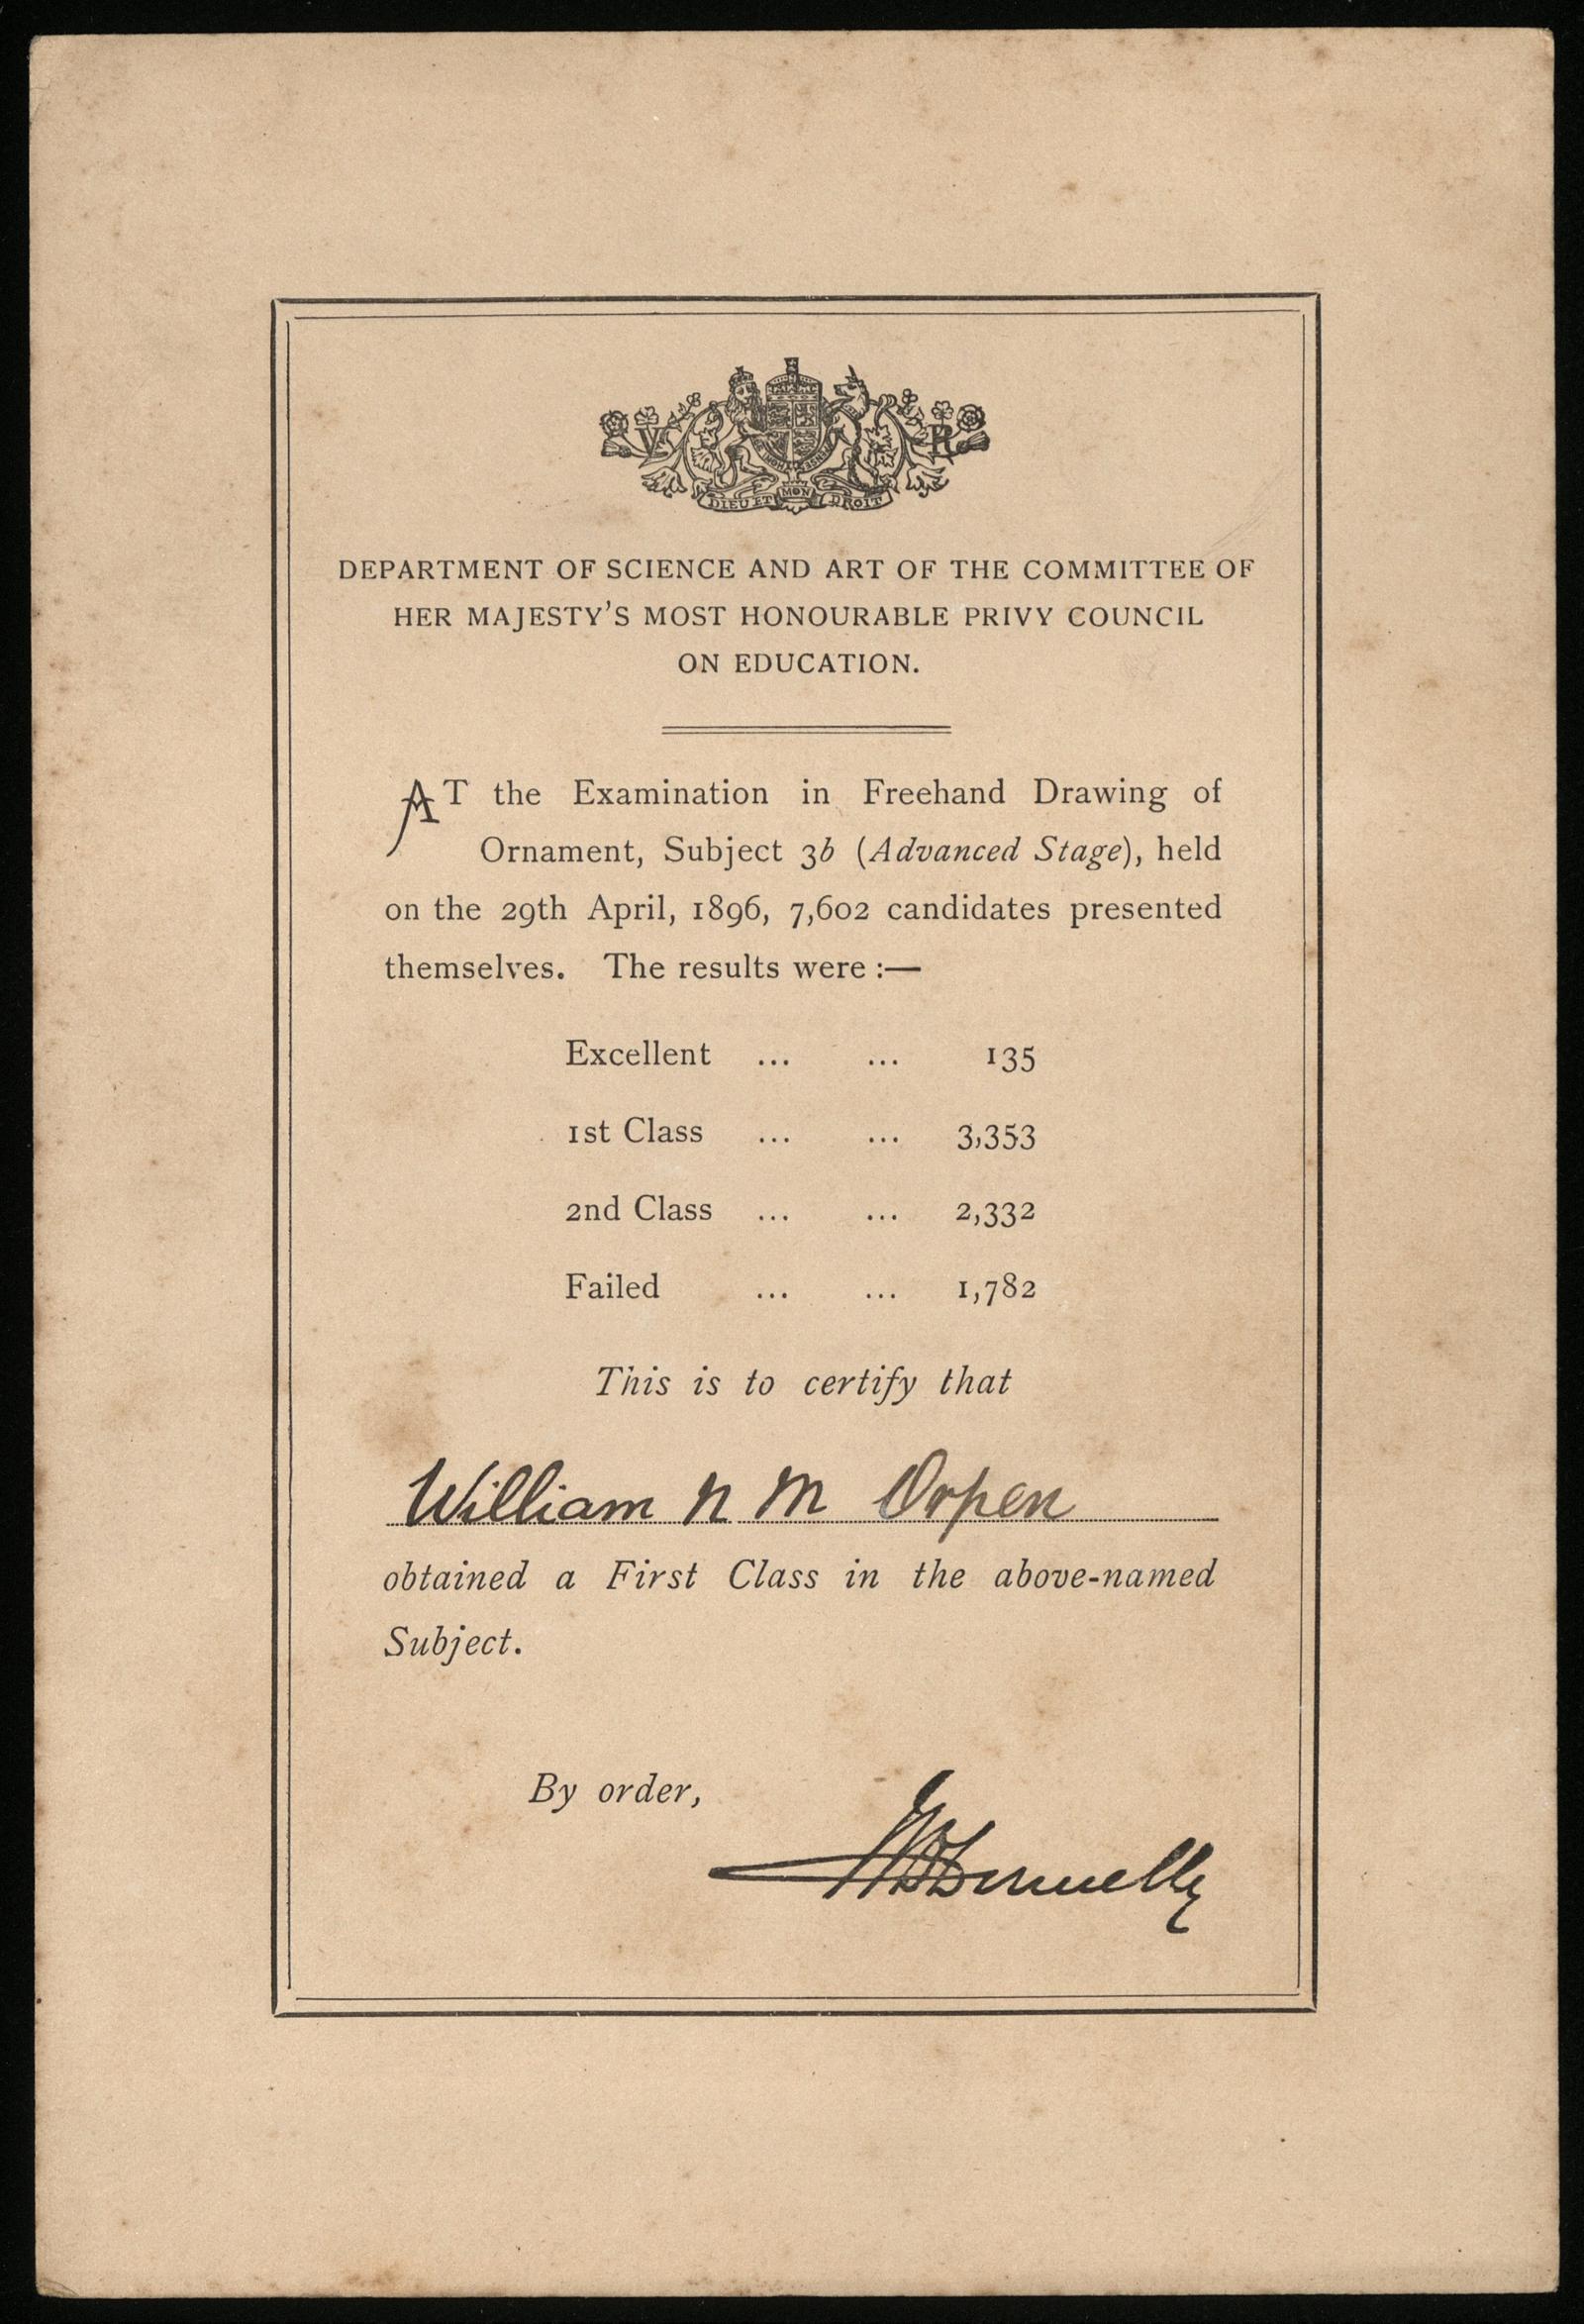 V R
HONI SOIT
DIEU ET MON DROIT
DEPARTMENT OF SCIENCE AND ART OF THE COMMITTEE OF
HER MAJESTY'S MOST HONOURABLE PRIVY COUNCIL
ON EDUCATION.
AT the Examination in Freehand Drawing of
Ornament, Subject 3b (Advanced Stage), held
on the 29th April, 1896, 7,602 candidates presented
themselves. The results were :—
Excellent ... ... 135
1st Class ... ... 3,353
2nd Class ... ... 2,332
Failed ... ... 1,782
This is to certify that
William N M Orpen
obtained a First Class in the above-named
Subject.
By order,
Donnelly